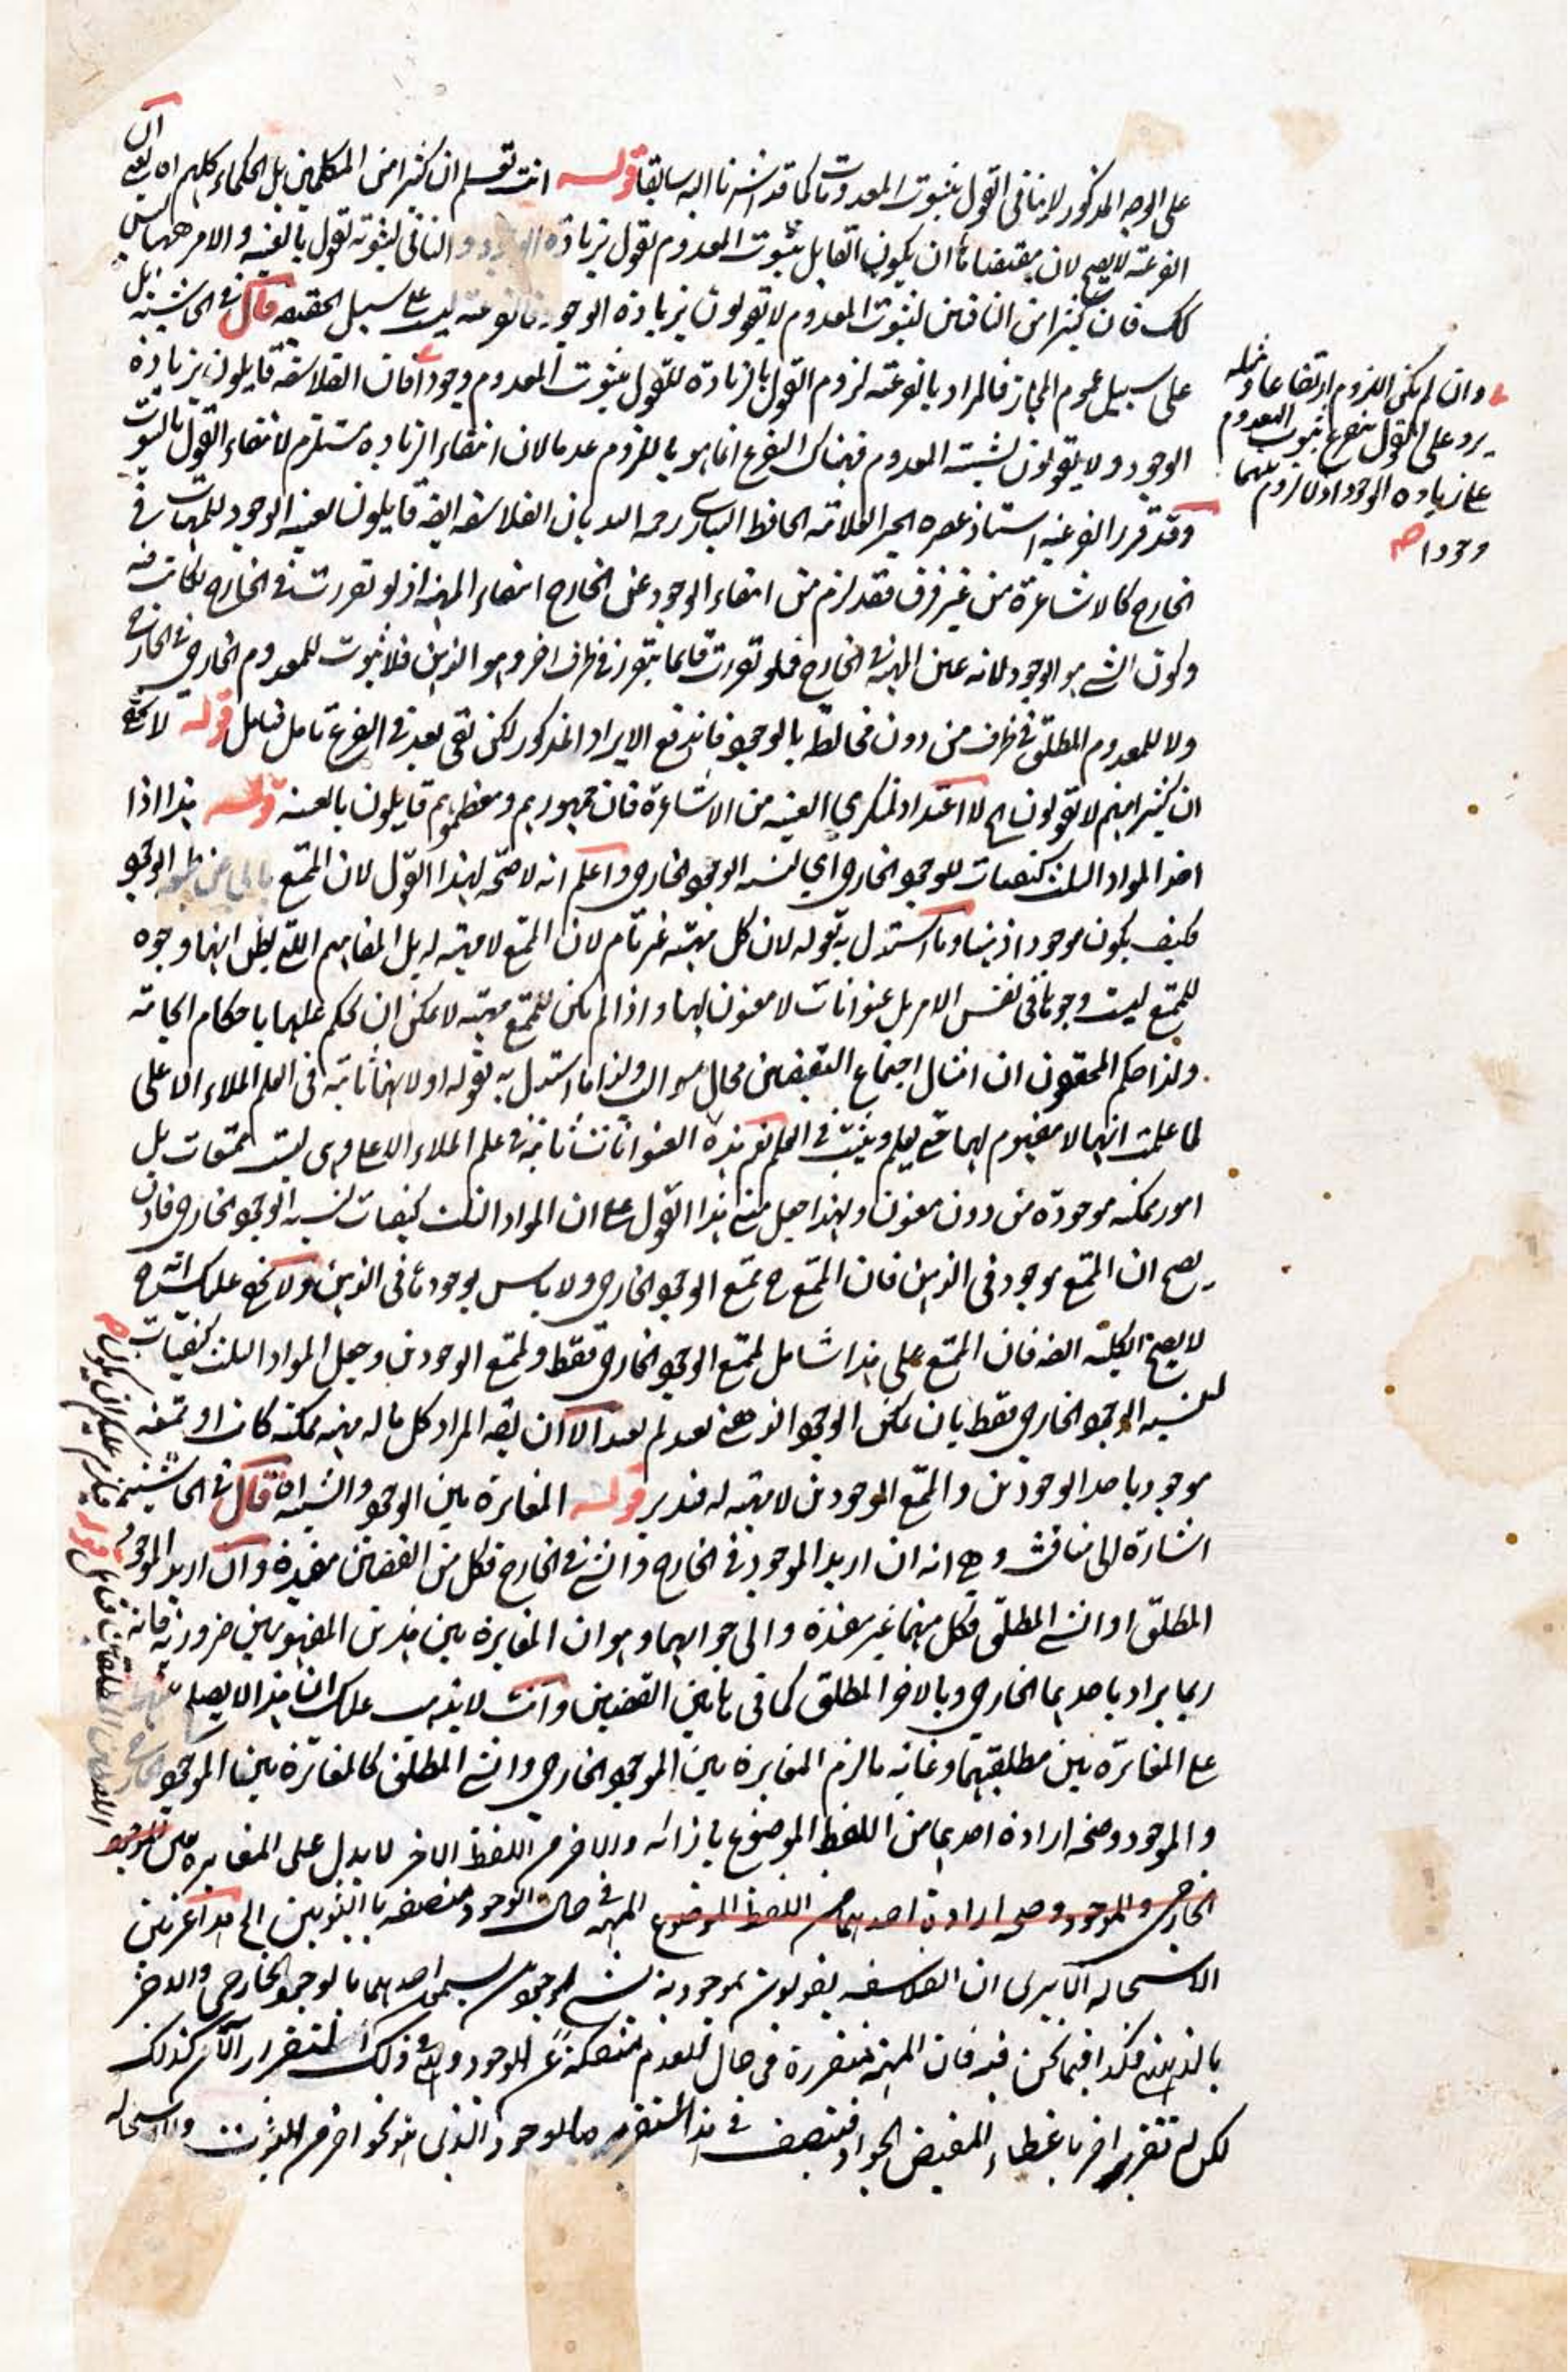 على الوجه المذكور لا ينافى القول بثبوت المعدومات كما قد اشرنا اليه سابقا قوله انت تعلم ان كثيرا من المتكلمين بل الحكماء كلهم اه
الفرعية لا يصح لان مقتضاها ان يكون القايل بثبوت المعدوم يقول بزيادة الوجود والنافى لثبوته يقول بالعينية والامر ههنا ليس
كك فان كثيرا من النافين لثبوت المعدوم لا يقولون بزيادة الوجود فالفرعية ليست على سبيل الحقيقة قال فى الحاشية بل
على سبيل عموم المجاز فالمراد بالفرعية لزوم القول بالزيادة للقول بثبوت المعدوم وجودا فان الفلاسفة قايلون بزيادة
الوجود ولا يقولون بشيئية المعدوم فهناك الفرع انما هو باللزوم عدما لان انتفاء الزيادة مستلزم لانتفاء القول بالثبوت
وقد قرر الفرعية استاذ عصره الحبر العلامة الحافظ البنارسى رحمه الله بان الفلاسفة ايضا قايلون بعينية الوجود للمهيات فى
الخارج كالاشاعرة من غير فرق فقد لزم من انتفاء الوجود عن الخارج انتفاء المهية اذ لو تقررت فى الخارج لكانت فيه
وكون الشئ هو الوجود لانه عين المهية فى الخارج فلو تقررت فانما يتقرر فى ظرف اخر وهو الذهن فلا ثبوت للمعدوم الخارجى فى الخارج
ولا للمعدوم المطلق فى ظرف من دون مخالطة بالوجود فاندفع الايراد المذكور لكن بقى بعد فى الفرع تامل فتامل قوله لا يخفى
ان كثيرا منهم لا يقولون اه لا اعتداد لمنكرى العينية من الاشاعرة فان جمهورهم ومعظمهم قايلون بالعينية قوله هذا اذا
اخذ المواد الثلث كيفيات للوجود الخارجى اى لنسبة الوجود الخارجى واعلم انه لا صحة لهذا القول لان الممتع الوجود
فكيف يكون موجودا ذهنيا وما استدل به بقوله لان كل مهية غير تام لان الممتنع لا مهية له بل المفاهيم التى يظن انها وجوه
للممتنع ليست وجوها فى نفس الامر بل عنوانات لا معنون لها واذا لم يكن للممتنع مهية لا يمكن ان يحكم عليها باحكام ايجابية
ولذا حكم المحققون ان امثال اجتماع النقيضين محال سوالب ولذا ما استدل به بقوله اولا انها ثابتة فى العلم الملاء الاعلى
لما علمت انها لا مفهوم لها حتى يعلم ويثبت فى العلم نعم هذه العنوانات ثابتة فى علم الملاء الاعلى وهى ليست بممتنعات بل
امور ممكنة موجودة من دون معنون ولهذا جعل مبنى هذا القول على ان المواد الثلث كيفيات نسبة الوجود الخارجى فاذن
يصح ان الممتنع موجود فى الذهن فان الممتنع ح ممتنع الوجود الخارجى ولا باس بوجودها فى الذهن ولا يخفى عليك انه ح
لا يصح الكلية ايضا فان الممتنع على هذا شامل لممتنع الوجود الخارجى فقط ولممتنع الوجودين وجعل المواد الثلث كيفيات
لنسبة الوجود الخارجى فقط بان يمكن الوجود الذهنى بعد لم يعد الا ان يقال المراد كل ما له مهية ممكنة كانت او ممتنعة
موجود باحد الوجودين والممتنع الوجودين لا مهية له فتدبر قوله المغايرة بين الوجود والشيئية اه قال فى الحاشية
اشارة الى مناقشة وهى انه ان اريد الموجود فى الخارج والشئ فى الخارج فكل من القضيتين مفيدة وان اريد الموجود
المطلق او الشئ المطلق فكل منهما غير مفيدة والى جوابهما وهو ان المغايرة بين هذين المفهومين ضرورية فانه
ربما يراد باحدهما الخارجى وبالاخر المطلق كما فى هاتين القضيتين وانت لا يذهب عليك ان هذا لا يصلح
على المغايرة بين مطلقيهما وغاية ما لزم المغايرة بين الموجود الخارجى والشئ المطلق كالمغايرة بين الموجود
والموجود وصحة ارادة احدهما من اللفظ الموضوع بازائه والاخر من اللفظ الاخر لا يدل على المغايرة بين الموجود
الخارجى والموجود وصحة ارادة احدهما من اللفظ الموضوع المهية فى حال الوجود متصفة بالثبوتين الى هذا عزيز
الاستحالة الا يرى ان الفلاسفة يقولون بموجودية شئ بوجودين يسمى احدهما بالوجود الخارجى والاخر
بالذهنى فكذا فيما نحن فيه فان المهية متقررة فى حال العدم منفكة عن الوجود وهى فى ذلك التقرر الان كذلك
لكن له تقرر اخر باعطاء المفيض الجواد فيتصف فى هذا التقرر بالوجود الذى هو نحو اخر من الثبوت والاستحالة
وان لم يكن اللزوم ارتفاعا ومثله
يرد على القول بتفرع ثبوت المعدوم
على زيادة الوجود اذ لا لزوم بينهما
وجودا صح